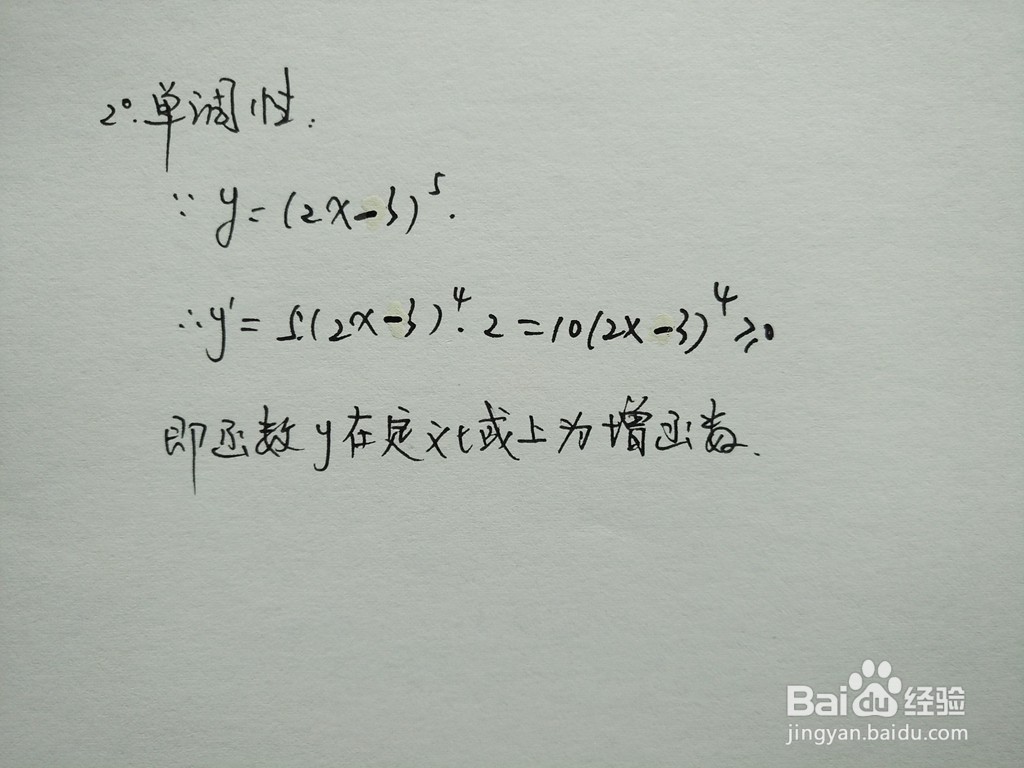 2°.单调性:
∵ y=(2x-3)⁵.
∴y'=5.(2x-3)⁴·2=10(2x-3)⁴≥0
即函数y在定义域上为增函数.
Bai 经验
jingyan.baidu.com